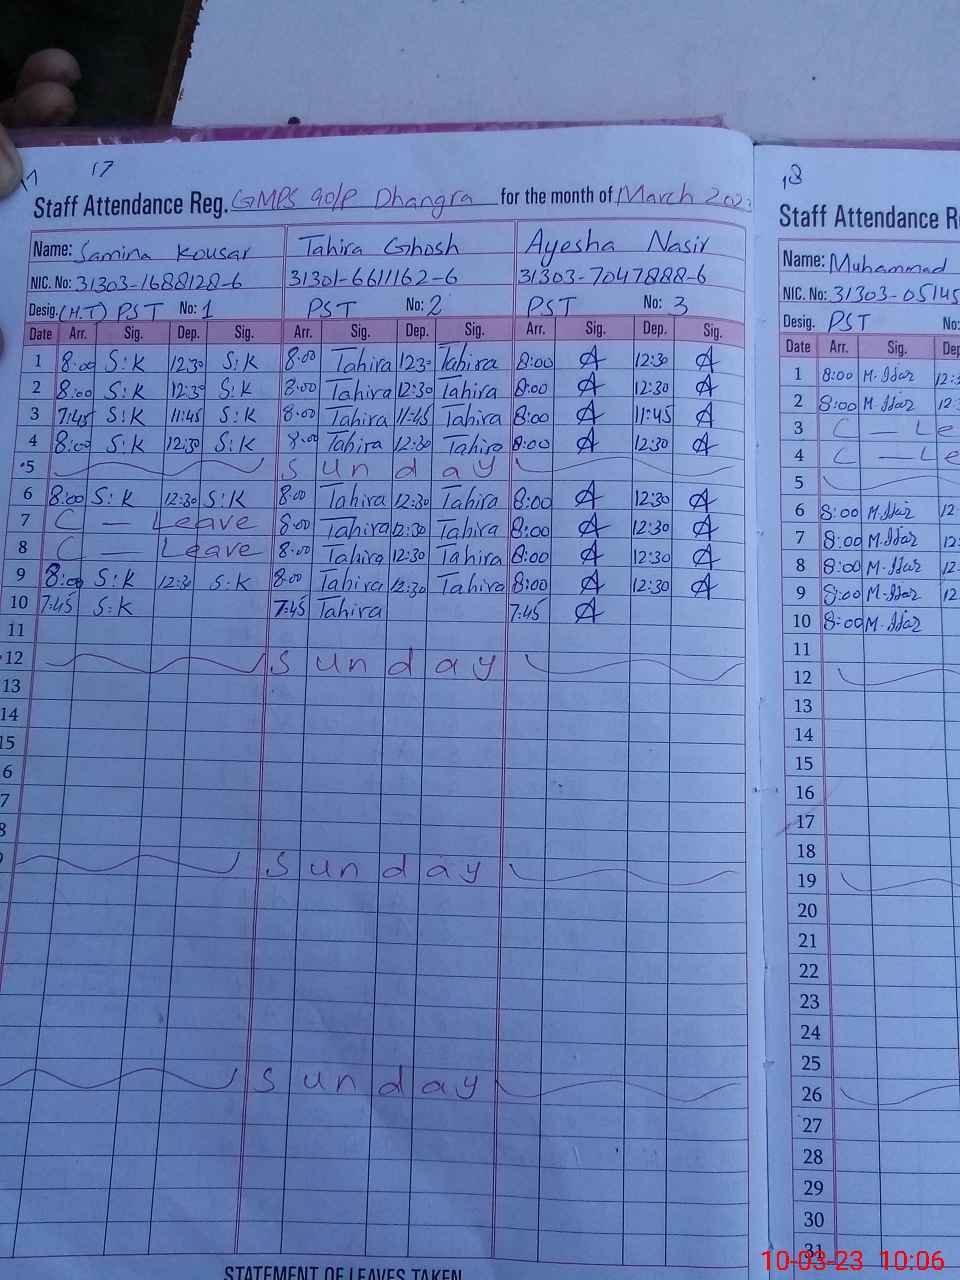 17
Staff Attendance Reg. GMPS 90/P Dhangra for the month of March
Name: Samina Kousar Tahira Ghosh Ayesha Nasir
NIC. No: 31303-1688128-6 31301-6611162-6 31303-7047888-6
Desig. (H.T) PST No: 1 PST No: 2 PST No: 3
Date Arr. Sig. Dep. Sig. Arr. Sig. Dep. Sig. Arr. Sig. Dep. Sig.
1 8:00 S:K 12:30 S:K 8:00 Tahira 12:30 Tahira 8:00 A 12:30 A
2 8:00 S:K 12:30 S:K 8:00 Tahira 12:30 Tahira 8:00 A 12:30 A
3 7:45 S:K 11:45 S:K 8:00 Tahira 11:45 Tahira 8:00 A 11:45 A
4 8:00 S:K 12:30 S:K 8:00 Tahira 12:30 Tahira 8:00 A 12:30 A
5 Sunday
6 8:00 S:K 12:30 S:K 8:00 Tahira 12:30 Tahira 8:00 A 12:30 A
7 C — Leave 8:00 Tahira 12:30 Tahira 8:00 A 12:30 A
8 C — Leave 8:00 Tahira 12:30 Tahira 8:00 A 12:30 A
9 8:00 S:K 12:30 S:K 8:00 Tahira 12:30 Tahira 8:00 A 12:30 A
10 7:45 S:K 7:45 Tahira 7:45 A
11
12 Sunday
13
14
15
6
7
8
Sunday
Sunday
STATEMENT OF LEAVES TAKEN
18
Staff Attendance
Name: Muhammad
NIC. No: 31303-05145
Desig. PST No:
Date Arr. Sig. Dep
1 8:00 M. 12:
2 8:00 M. 12:
3 C — Le
4 C — Le
5
6 8:00 M. 12
7 8:00 M. 12:
8 8:00 M. 12:
9 8:00 M. 12
10 8:00 M.
11
12
13
14
15
16
17
18
19
20
21
22
23
24
25
26
27
28
29
30
31
10-03-23 10:06